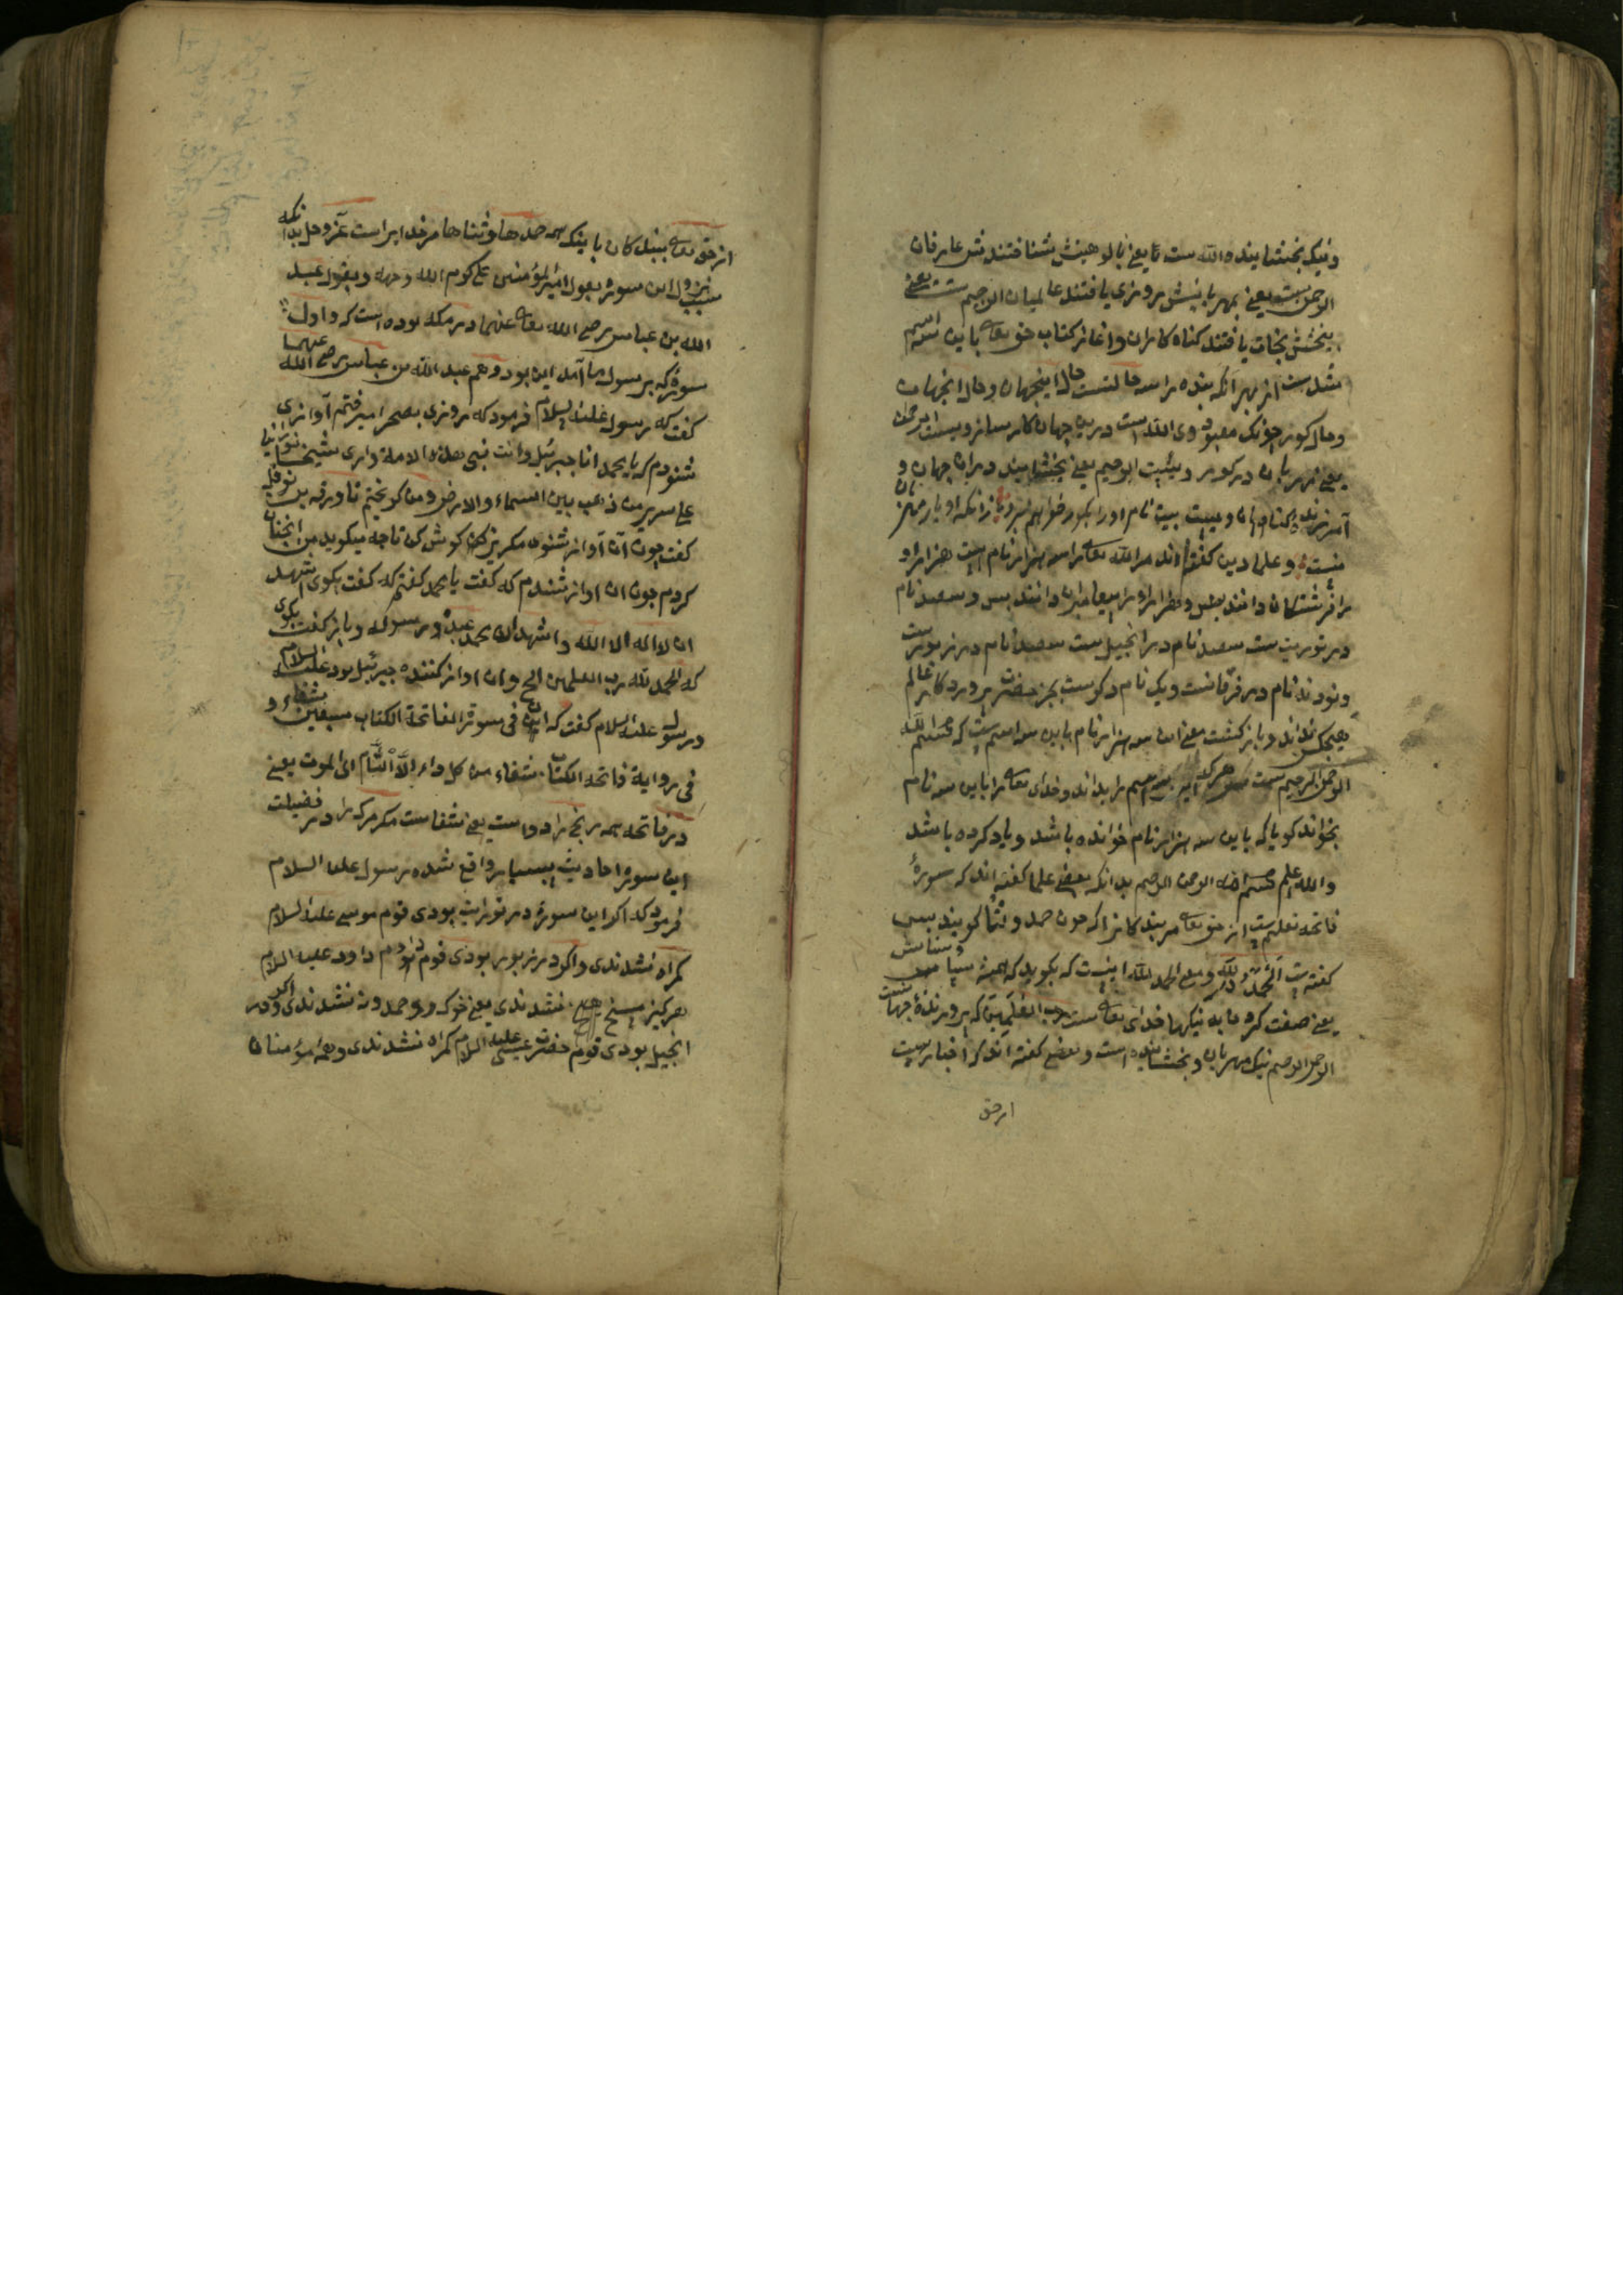 ونیک بخشاینده الله ست تا یعنی بالوهیتش شناختندش عارفان
الرحمن ست یعنی بمهربانیش روزی یافتند عالمیان الرحیم ست یعنی
ببخشش نجات یافتند کناه کاران و اغاز کتاب حق تعا باین سه اسم
شد ست از بهر آنکه بنده را سه حالتست حال اینجهان و حال انجهان
و حال کور جونک معبود وی الله است درین جهان کارساز ویست الرحمن
یعنی مهربان در کور ویست الرحیم یعنی بخشاینده در ان جهان و
آمرزنده کناهان
نیست و علما دین کفته اند مر الله تعا را سه هزار نام است هزار او
را فرشتکان دانند بس و هزار او را پیغامبران دانند بس و سیصد نام
در توریت ست سیصد نام در انجیل ست سیصد نام در زبور ست
و نود نه نام در فرقانست و یک نام دکر ست بجز حضرت پروردکار عالم
هیچکس نداند و بازکشت معنی این سه هزار نام باین سه اسم ست که بسم الله
الرحمن الرحیم ست هر که را بداند و خدای تعا را باین سه نام
بخواند کویا که باین سه هزار نام خوانده باشد و یاد کرده باشد
والله اعلم بسم الله الرحمن الرحیم بدانکه بعضی علما کفته اند که سورهٔ
فاتحه تعلیم ست از حق تعا مر بندکانرا که جون حمد و ثنا کویند پس
کفته ست الحمد لله و معنی الحمد لله اینست که بکوید که همه سپاس و ستایش
یعنی صفت کردها به نیکیها خدای تعا ست رب العلمین که پرورندهٔ جهانست
الرحمن الرحیم نیک مهربان و بخشاینده است و بعضی کفته اند که اخبار ست
از حق
از حق تعا ببندکان باینکه همه حمدها و ثناها مر خدایراست عز و جل بدانکه
سبب نزول این سوره بقول امیر المؤمنین علی کرم الله وجهه و بقول عبد
الله بن عباس رضی الله تعا عنهما در مکه بوده است که و اول
سوره که بر رسول ما آمد این بود و هم عبد الله بن عباس رضی الله عنهما
کفت که رسول علیه السلام فرمود که روزی بصحرا میرفتم آوازی
شنودم که یا محمد انا جبرئیل وانت نبی هذه الامة واری شیخا نورانیا
علی سریر من ذهب بین السماء والارض و من کریختم تا ورقه بن نوفل
کفت جون آن آواز شنوی مکریز کوش کن تا چه میکوید من انچنان
کردم جون ان اواز شنیدم که کفت یا محمد کفتم که کفت بکوی اشهد
ان لا اله الا الله واشهد ان محمد عبده ورسوله و باز کفت بکوی
که الحمد لله رب العلمین الخ و ان اواز کننده جبرئیل بود علیه السلام
و رسول علیه السلام کفت که ان فی سورة الفاتحة الکتاب سبعین شفاء و
فی روایة فاتحة الکتاب شفاء من کل داء الا السام ای الموت یعنی
در فاتحه همه رنج را دواست یعنی شفاست مکر مرک را در فضیلت
این سوره احادیث بسیار واقع شده رسول علیه السلام
فرمود که اکر این سوره در توریت بودی قوم موسی علیه السلام
کمراه نشدندی و اکر در زبور بودی قوم داود علیه السلام
هرکیز مسخ نشدندی یعنی خوک و حمدونه نشدندی و اکر در
انجیل بودی قوم حضرت عیسی علیه السلام کمراه نشدندی و همه مؤمنان